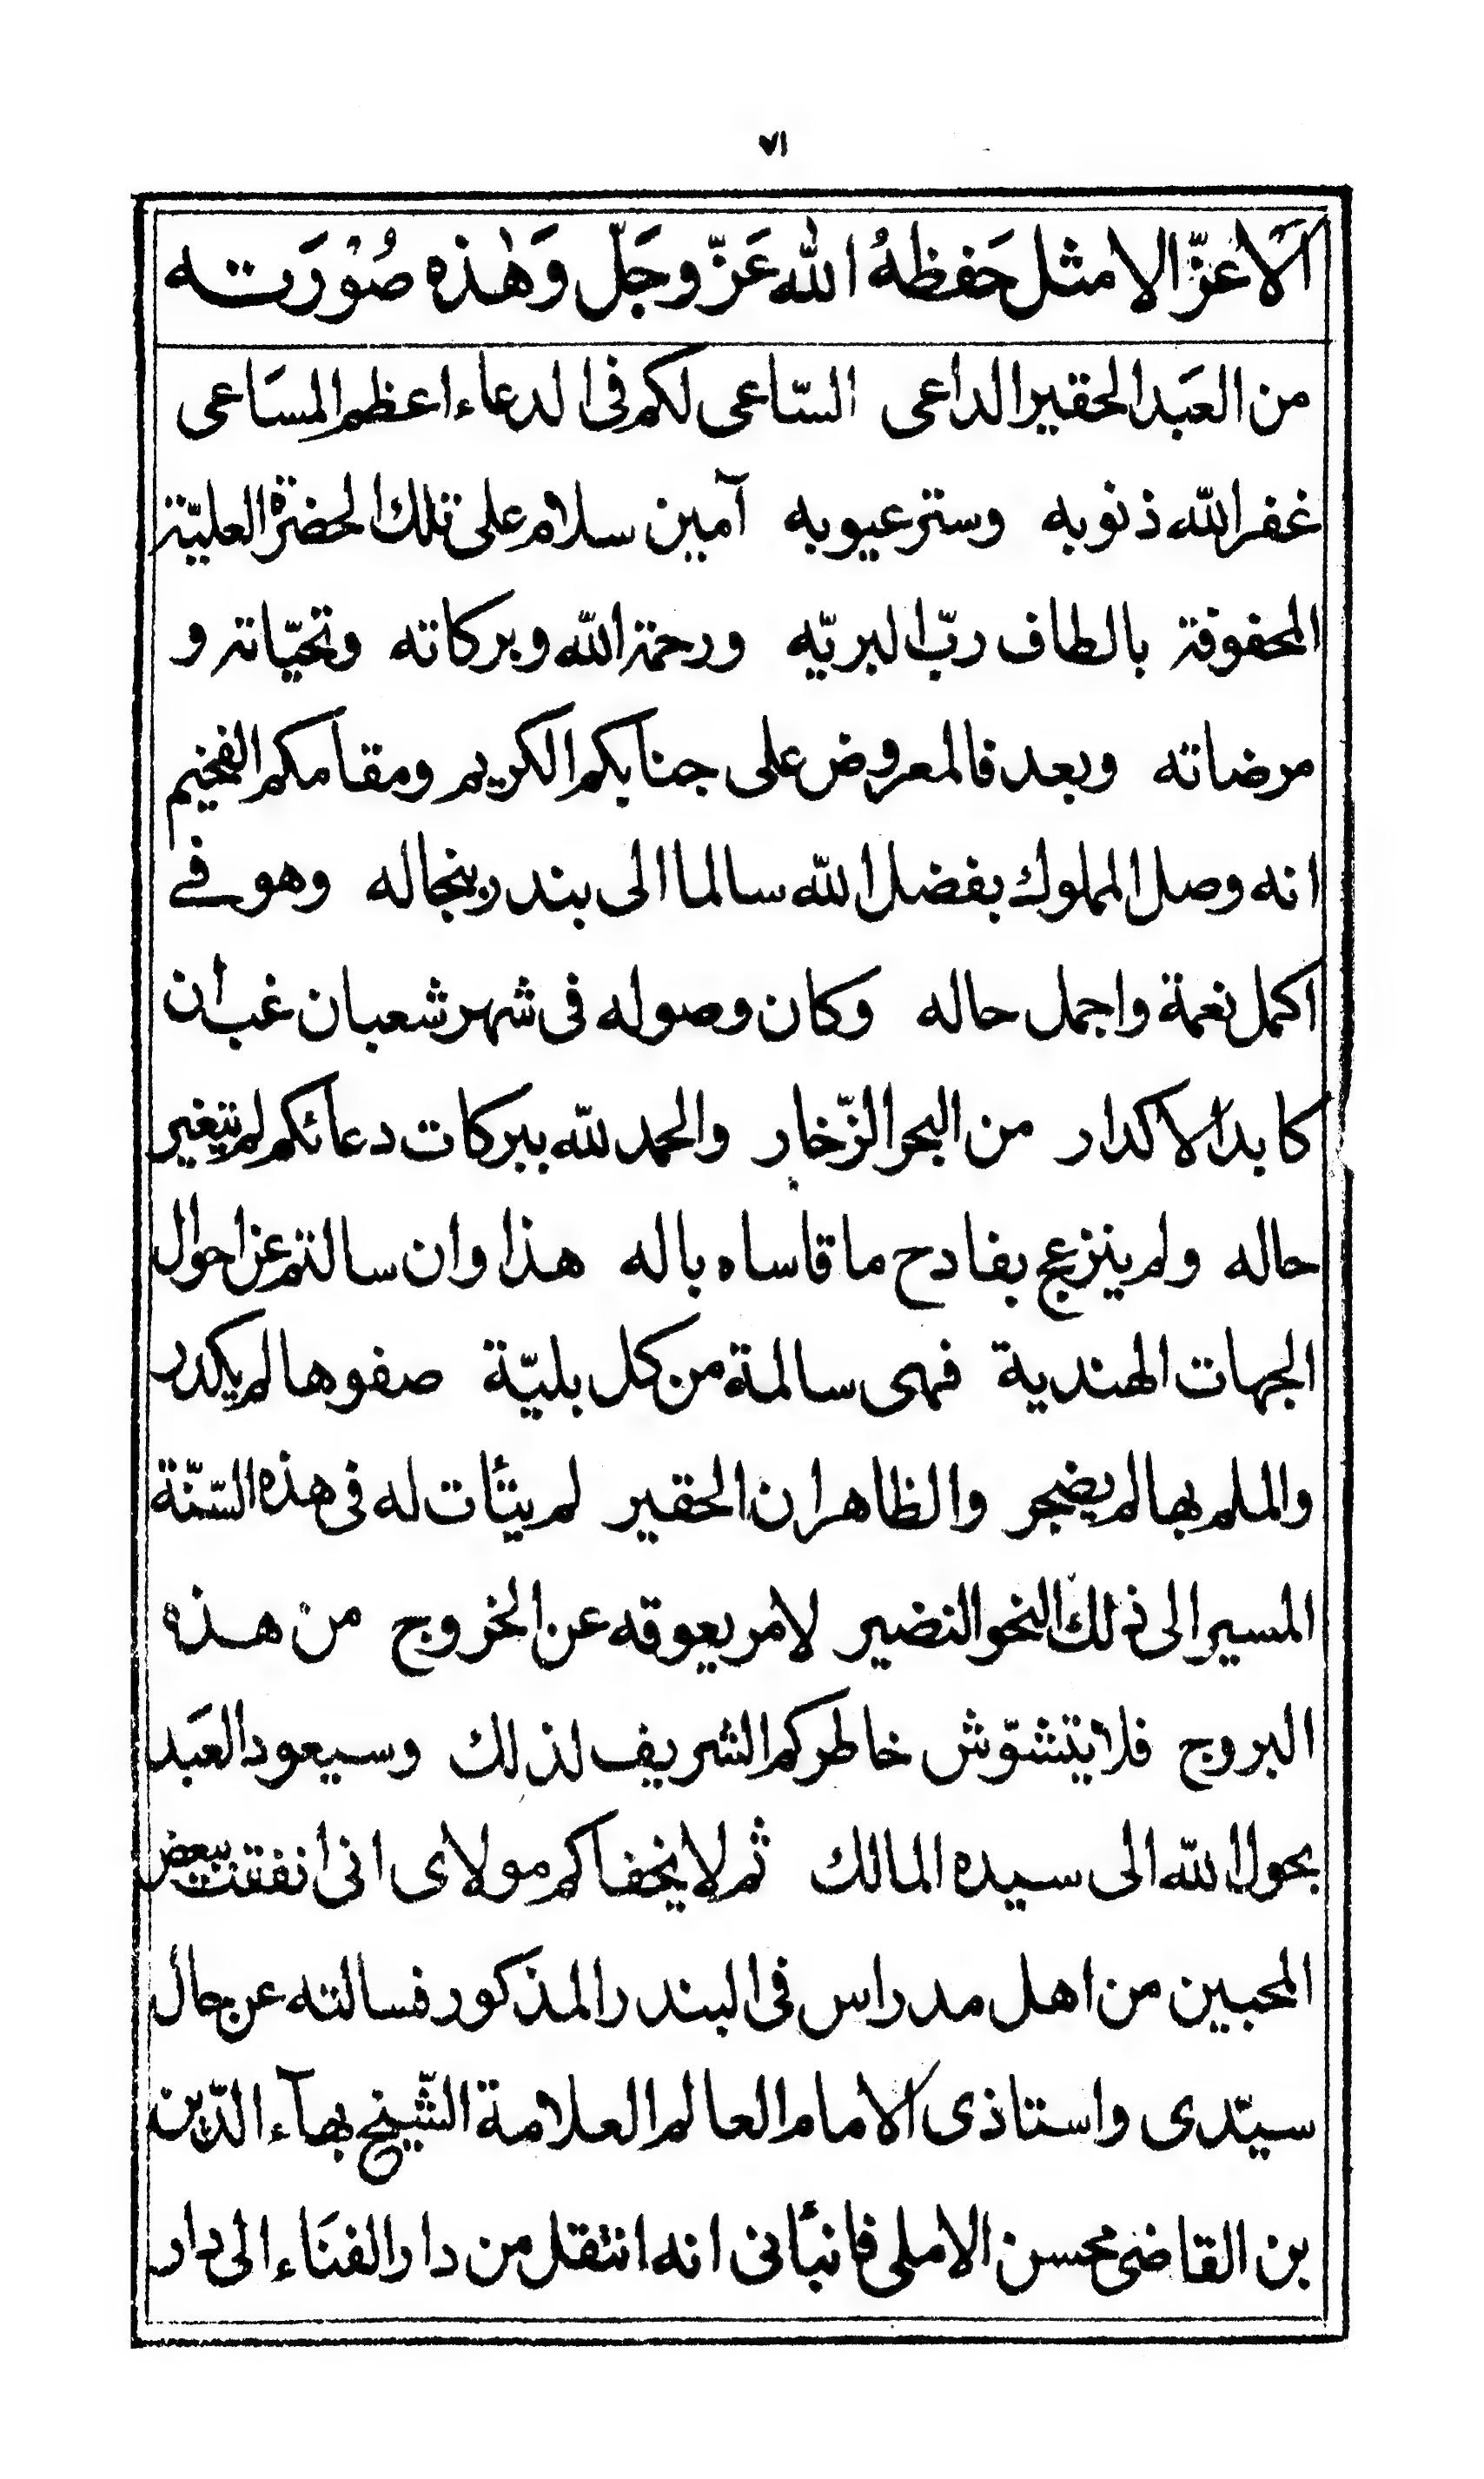 ٧١
اَلاَعزّ الامثل حَفظهُ الله عَزّ وجَلّ وَهٰذه صُوْرَته
من العَبد الحقير الداعى السّاعى لكم فى الدعاء اعظم المسَاعى
غفر الله ذنوبه وستر عيوبه آمين سلام على تلك الحضرة العليّة
المحفوفة بالطاف ربّ البريّه ورحمة الله وبركاته وتحيّاته و
مرضاته وبعد فالمعروض على جنابكم الكريم ومقامكم الفخيم
انه وصل المملوك بفضل الله سالما الى بندر بنجاله وهو فے
اكمل نعمة واجمل حاله وكان وصوله فى شهر شعبان غب ان
كابد الاكدار من البحر الزّخار والحمد لله ببركات دعائكم لم يتغير
حاله ولم ينزعج بفادح ما قاساه باله هذا وان سالتم عن احوال
الجهات الهندية فهى سالمة من كل بليّة صفوها لم يكدر
والملم بها لم يضجر والظاهر ان الحقير لم يتأت له فى هذه السّنّة
المسير الى ذلك النحو النضير لامر يعوقه عن الخروج من هذه
البروج فلا يتشوّش خاطركم الشريف لذلك وسيعود العَبد
بحول الله الى سيده المالك ثم لا يخفاكم مولاى انى انفقت ببعض
المحبين من اهل مدراس فى البندر المذكور فسالته عن حال
سيّدى واستاذى الامام العالم العلامة الشّيخ بهآء الدّين
بن القاضى محسن الاملى فانبأنى انه انتقل من دار الفنَاء الى دار